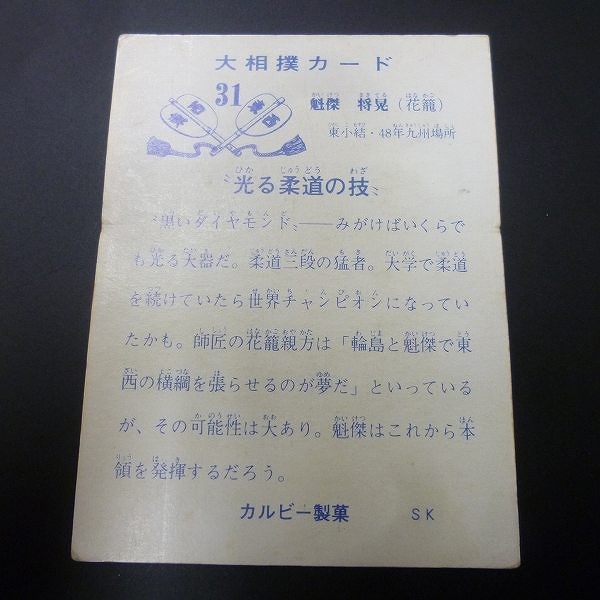 大相撲カード
31
東西
魁傑 将晃（花籠）
東小結・48年九州場所
〝光る柔道の技〟
〝黒いダイヤモンド〟――みがけばいくらで
も光る大器だ。柔道三段の猛者。大学で柔道
を続けていたら世界チャンピオンになってい
たかも。師匠の花籠親方は「輪島と魁傑で東
西の横綱を張らせるのが夢だ」といっている
が、その可能性は大あり。魁傑はこれから本
領を発揮するだろう。
カルビー製菓 SK